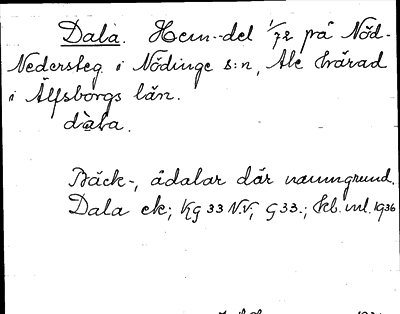 Dala. Hem.-del 1/72 på Nöd-
Nedersteg i Nödinge s:n, Ale härad
i Älfsborgs län.
dàla.
Bäck-, ådalar där namngrund.
Dala ek; Kg 33 N.V; G33.; kb.